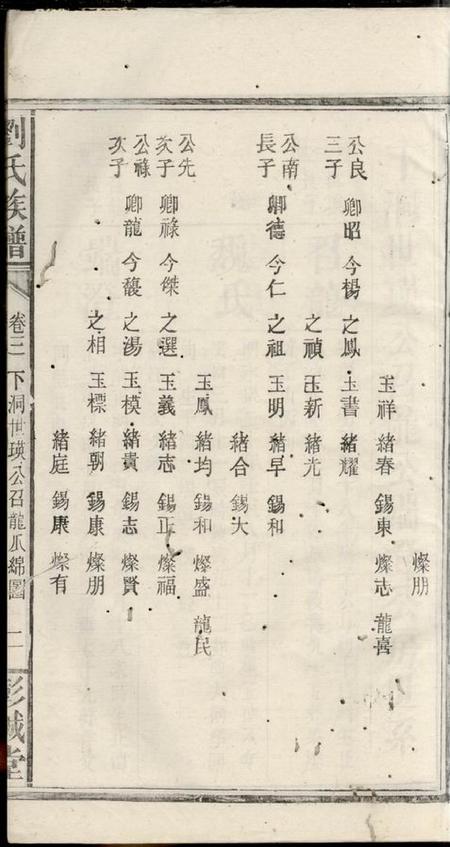 燦朋
玉祥 緒春 錫東 燦志 龍喜
公良三子 卿昭 今楊 之鳳 玉書 緒耀
之禎 玉新 緒光
公南長子 卿德 今仁 之祖 玉明 緒早 錫和
緒合 錫大
玉鳳 緒均 錫和 燦盛 龍民
公先次子 卿祿 今傑 之選 玉義 緒志 錫正 燦福
公祿次子 卿龍 今馥 之湯 玉模 緒貴 錫志 燦賢
之相 玉標 緒朝 錫康 燦朋
緒庭 錫康 燦有
劉氏族譜 卷三 下洞世瑛公召龍爪綿圖 二 彭城堂